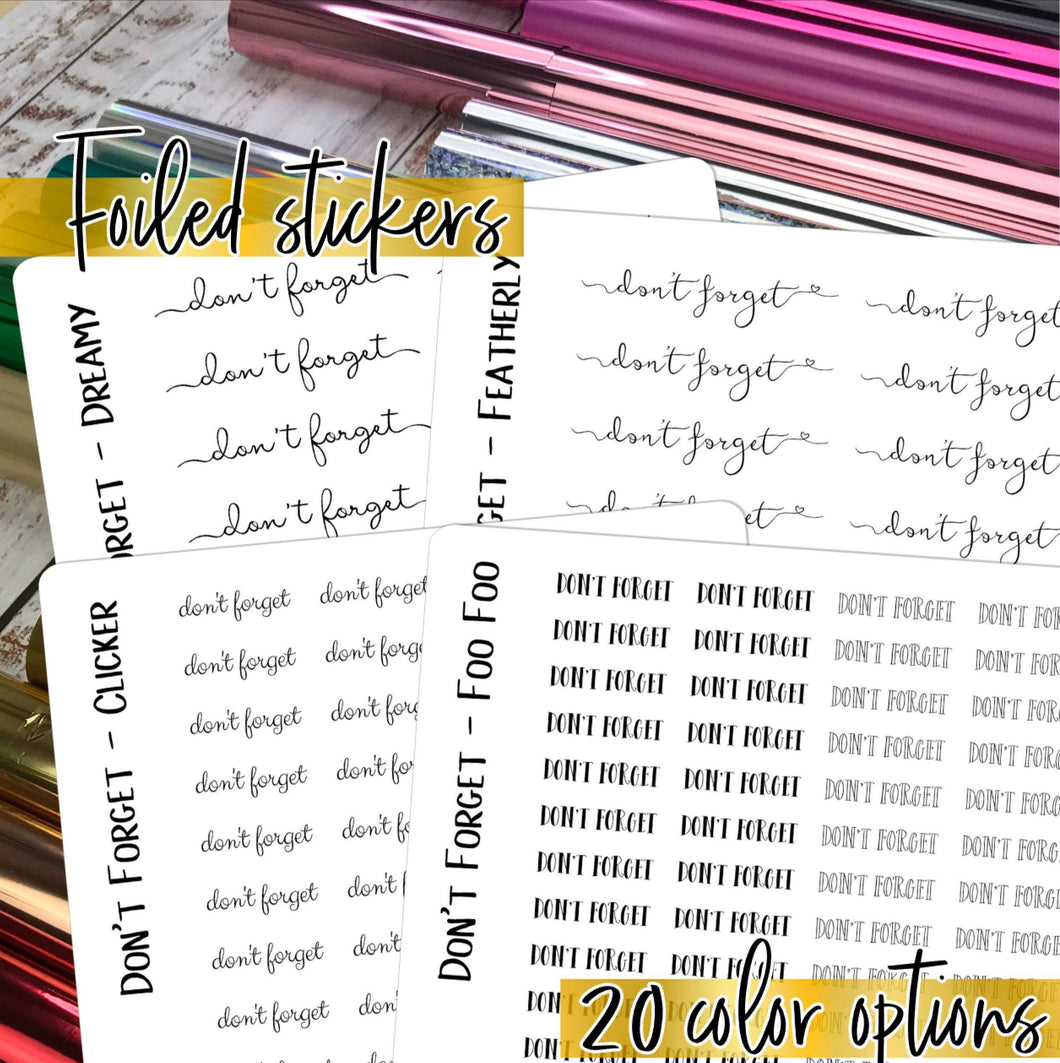 Foiled stickers
DREAMY
don't forget
don't forget
don't forget
don't forget
FEATHERLY
don't forget don't forget
don't forget don't forget
don't forget don't forget
don't forget
DON'T FORGET – CLICKER
don't forget don't forget
don't forget don't
don't forget don't
don't forget don't
don't forget don't
don't forget don't
don't forget don't
don't forget
DON'T FORGET – FOO FOO
DON'T FORGET DON'T FORGET DON'T FORGET DON'T
DON'T FORGET DON'T FORGET DON'T FORGET DON'T
DON'T FORGET DON'T FORGET DON'T FORGET DON'T
DON'T FORGET DON'T FORGET DON'T FORGET DON'T
DON'T FORGET DON'T FORGET DON'T FORGET DON'T
DON'T FORGET DON'T FORGET DON'T FORGET DON'T
DON'T FORGET DON'T FORGET DON'T FORGET DON'T
DON'T FORGET DON'T FORGET DON'T FORGET DON'T
DON'T FORGET DON'T FORGET DON'T FORGET DON'T
20 color options